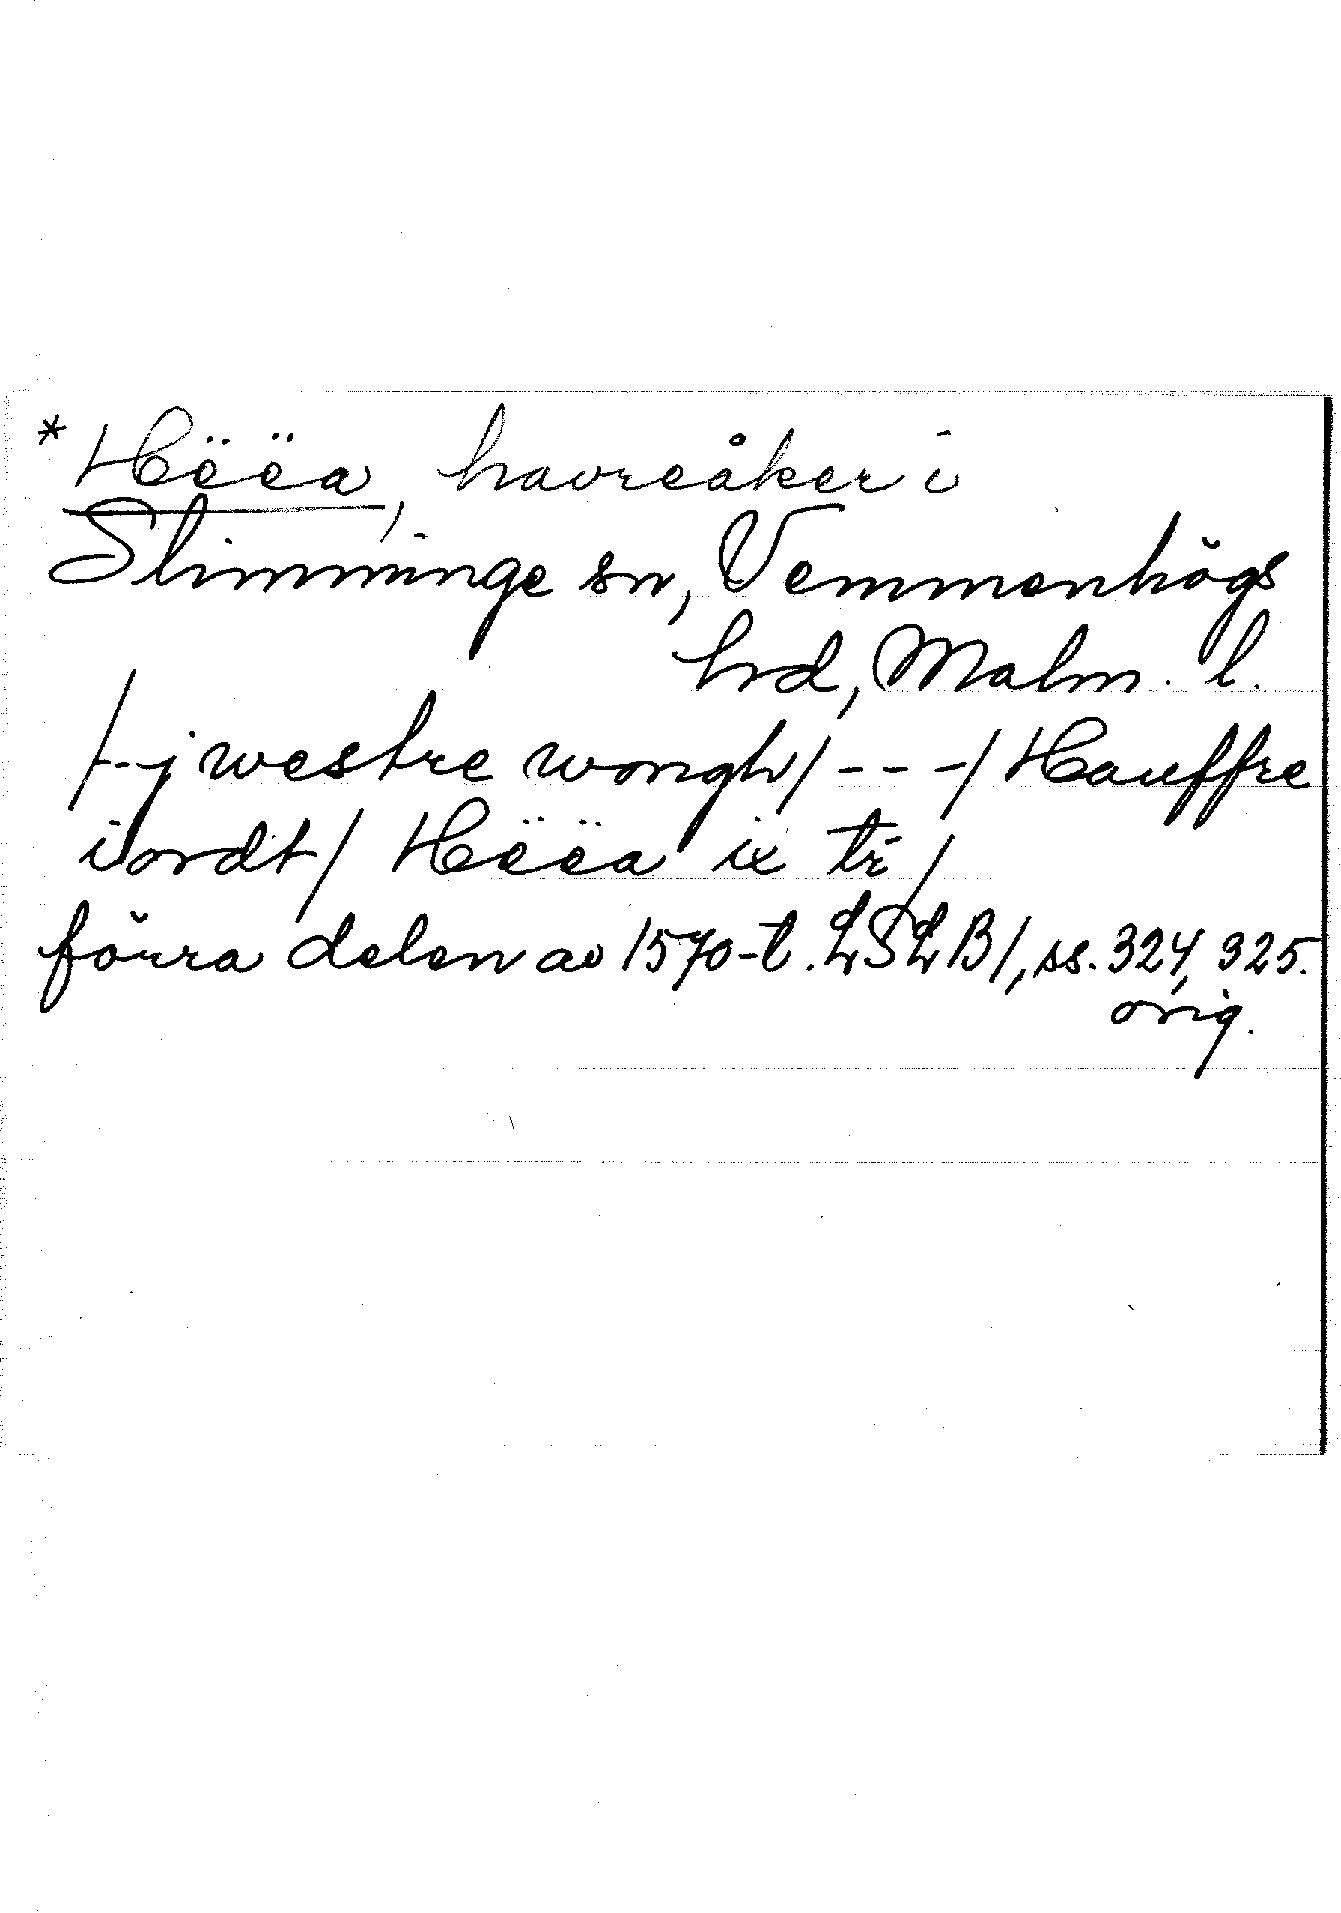 *Hëëa, havreåker i
Slimminge sn, Vemmenhögs
hrd, Malm. l.
/--j westre wongh/ - - -/ Hauffre
iordt/ Hëëa ix tr̄/
förra delen av 1570-t. LSLB/, ss. 324, 325.
orig.